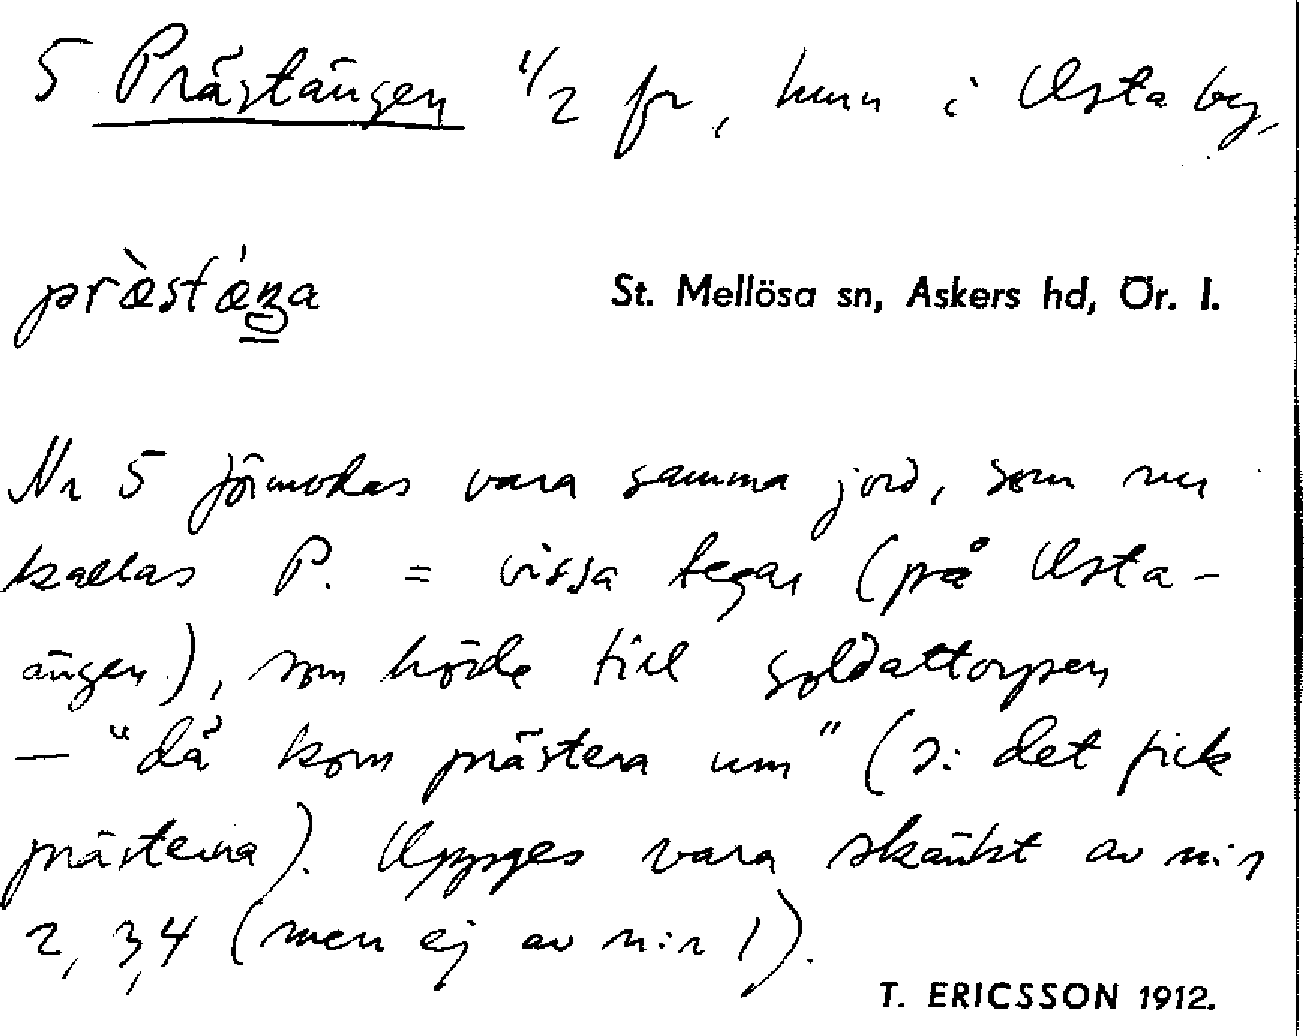 5 Prästängen 1/2 fr, hum i Usta by,
prèstéŋa
St. Mellösa sn, Askers hd, Ör. l.
Nr 5 förmodas vara samma jord, som nu
kallas P. = vissa tegar (på Usta-
ängen), som hörde till soldattorpen
— "dä kom prästera um" (ɔ: det fick
prästerna). Uppges vara skänkt av n:r
2, 3, 4 (men ej av n:r 1).
T. ERICSSON 1912.